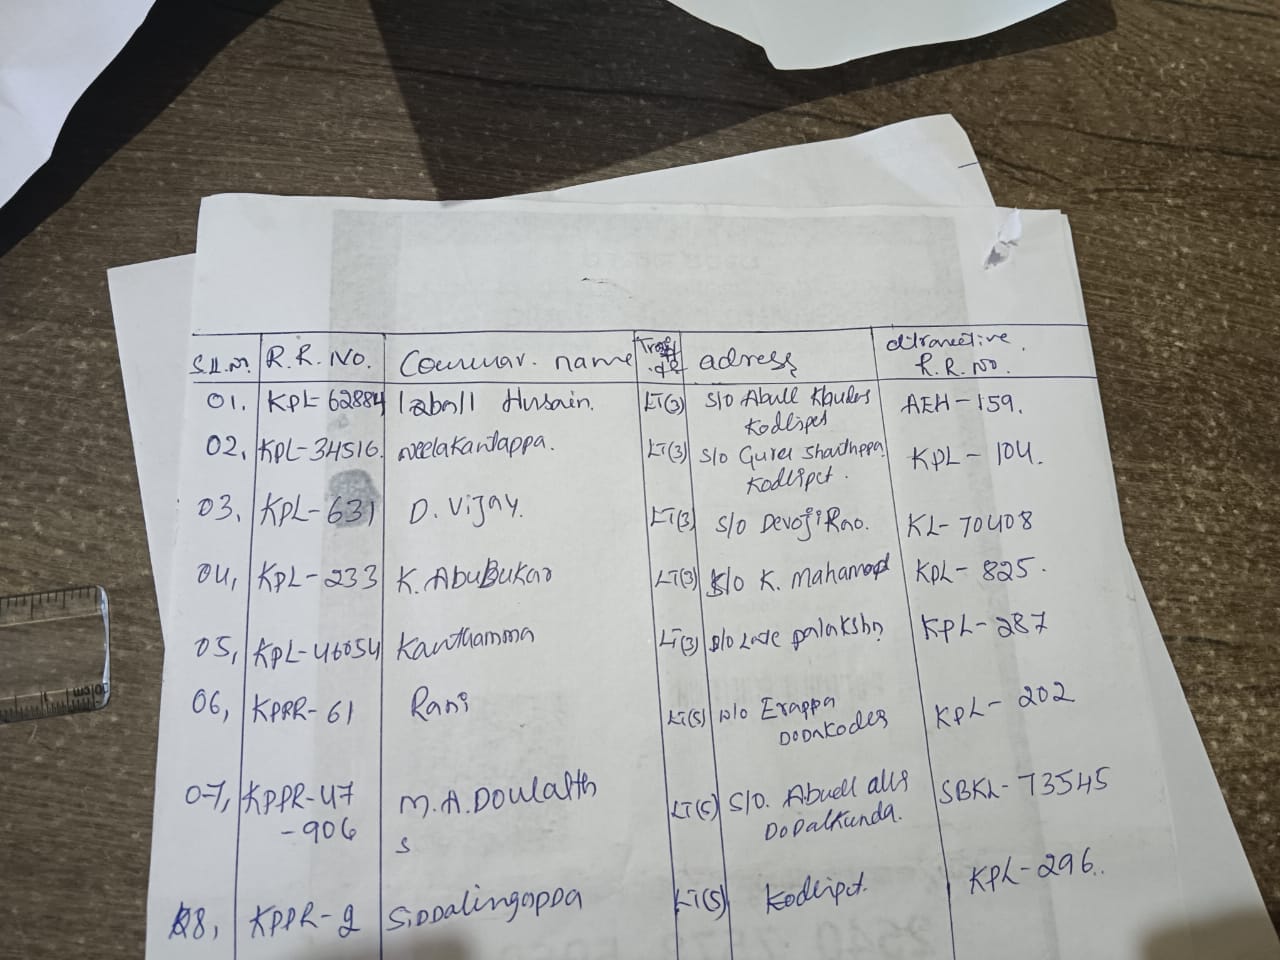 S.L.no. R.R. No. Counuar. name adress altranective R.R. no.
01. KPL-62884 Iabnll Husain. LT(3) S/O Abull Khudos
Kodlipet AEH-159.
02, KPL-34516. neelakantappa. LT(3) S/O Gurea Shanthppa
Kodlipet. KPL-104.
03, KPL-631 D. Vijay. LT(3) S/O Devoji Rao. KL-70408
04, KPL-233 K. AbuBukar LT(3) S/O K. Mahamod KPL-825.
05, KPL-46054 Kanthamma LT(3) Late palakshn KPL-287
06, KPRR-61 Rani LT(5) W/O Erappa
DODAKodes KPL-202
07, KPPR-47 M.A.Doulatth LT(5) S/O. Abuell alli SBKL-73545
-906 s DoDalkunda.
08, KPPR-2 SiDDalingappa LT(5) Kodlipet. KPL-296.